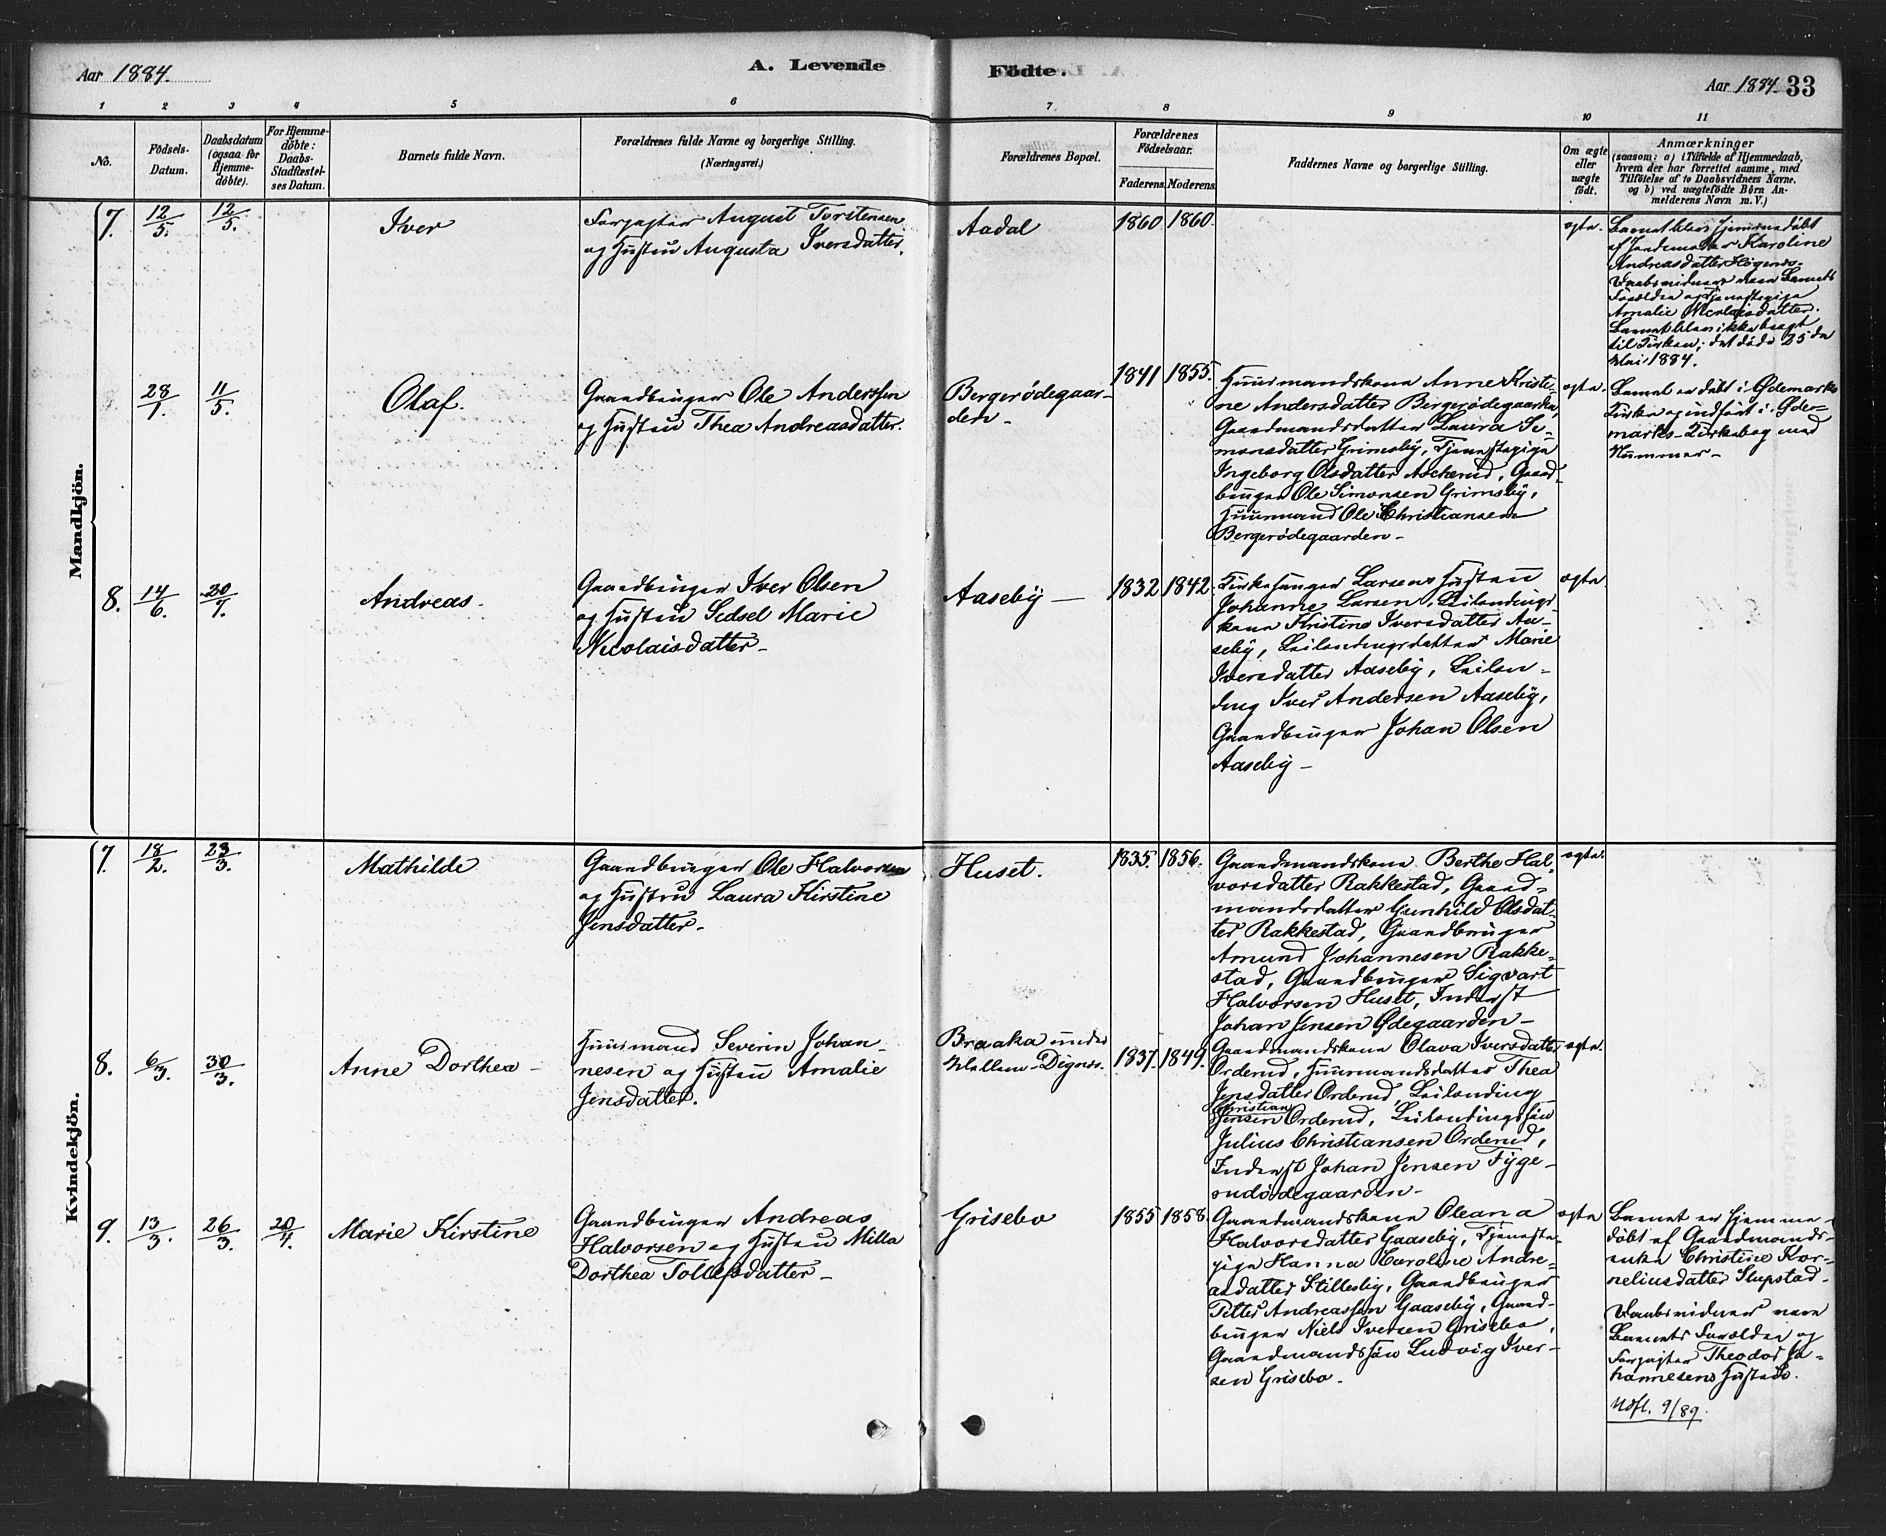 Aar 1884.
A. Levende
Födte.
Aar 1884. 33
1 2 3 4 5 6 7 8 9 10 11
No.
Födsels-
Datum.
Daabsdatum
(ogsaa for
Hjemme-
döbte).
For Hjemme-
döbte:
Daabs-
Stadfæstel-
ses Datum.
Barnets fulde Navn.
Forældrenes fulde Navne og borgerlige Stilling.
(Næringsvei.)
Forældrenes Bopæl.
Forældrenes
Födselsaar.
Faderens.
Moderens.
Faddernes Navne og borgerlige Stilling.
Om ægte
eller
uægte
født.
Anmærkninger
(saasom: a) i Tilfælde af Hjemmedaab,
hvem der har forrettet samme, med
Tilföielse af to Daabsvidners Navne,
og b) ved uægtefödte Börn An-
melderens Navn m. V.)
Mandkjön.
7. 12/5. 12/5.
Iver
Forpagter August Torstensen
og Hustru Augusta Iversdatter.
Aadal
1860 1860.
ægte.
Barnet blev hjemmedøbt
af Jordemoder Karoline
Andreasdatter
Daabsvidner vare Barnets
Forældre og Tjenestepige
Amalie Nicolaisdatter.
Barnet blev ikke bragt
til Kirken; det døde 25de
Mai 1884.
28/1. 11/5.
Olaf.
Gaardbruger Ole Anderssen
og Hustru Thea Andreasdatter.
Bergerødegaar-
den -
1841 1855.
Huusmandskone Anne Kristi-
ne Andersdatter Bergerødegaarden,
Gaardmandsdatter Laura Si-
monsdatter Grimsby, Tjenestepige
Ingeborg Olsdatter Ascherud, Gaard-
bruger Ole Simonsen Grimsby,
Huusmand Ole Christiansen
Bergerødegaarden -
ægte.
Barnet er døbt i Ødemarks
Kirke og indført i Øde-
marks Kirkebog med
Nummer -
8. 14/6. 20/7.
Andreas.
Gaardbruger Iver Olsen
og Hustru Sidsel Marie
Nicolaisdatter -
Aaseby -
1832 1842.
Kirkesanger Larsens Hustru
Johanne Larsen, Leilændings-
kone Kristine Iversdatter Aa-
seby, Leilændingsdatter Marie
Iversdatter Aaseby, Leilæn-
ding Iver Andersen Aaseby,
Gaardbruger Johan Olsen
Aaseby -
ægte.
Kvindekjön.
7. 18/2. 23/3.
Mathilde
Gaardbruger Ole Halvorsen
og Hustru Laura Kirstine
Jensdatter -
Huset.
1835. 1856.
Gaardmandskone Berthe Hal-
vorsdatter Rakkestad, Gaard-
mandsdatter Gunhild Olsdat-
ter Rakkestad, Gaardbruger
Amund Johannesen Rakke-
stad, Gaardbruger Sigvart
Halvorsen Huset, Inderst
Johan Jensen Ødegaarden -
ægte.
8. 6/3. 30/3.
Anne Dorthea -
Huusmand Severin Johan-
nesen og Hustru Amalie
Jensdatter.
Braaka under
Mellem - Dignes.
1837. 1849.
Gaardmandskone Olava Iversdatter
Orderud, Huusmandsdatter Thea
Jensdatter Orderud, Leilænding
Christian
Jensen Orderud, Leilændingssøn
Julius Christiansen Orderud,
Inderst Johan Jensen Tyge-
rudødegaarden -
ægte.
9. 13/3. 26/3. 20/4.
Marie Kirstine
Gaardbruger Andreas
Halvorsen og Hustru Milla
Dorthea Tollefsdatter -
Grisebo
1855 1858.
Gaardmandskone Oleana
Halvorsdatter Gaaseby, Tjeneste-
pige Hanna Caroline Andre-
asdatter Stillesby, Gaardbruger
Petter Andreassen Gaaseby, Gaard-
bruger Niels Iversen Grisebo,
Gaardmandssøn Ludvig Iver-
sen Grisebo.
ægte
Barnet er hjemme-
døbt af Gaardmands-
enke Christine Kor-
neliusdatter Slupstad -
Daabsvidner vare
Barnets Forældre og
Forpagter Theodor Jo-
hannesens Hustru.
Udfl. 9/89.